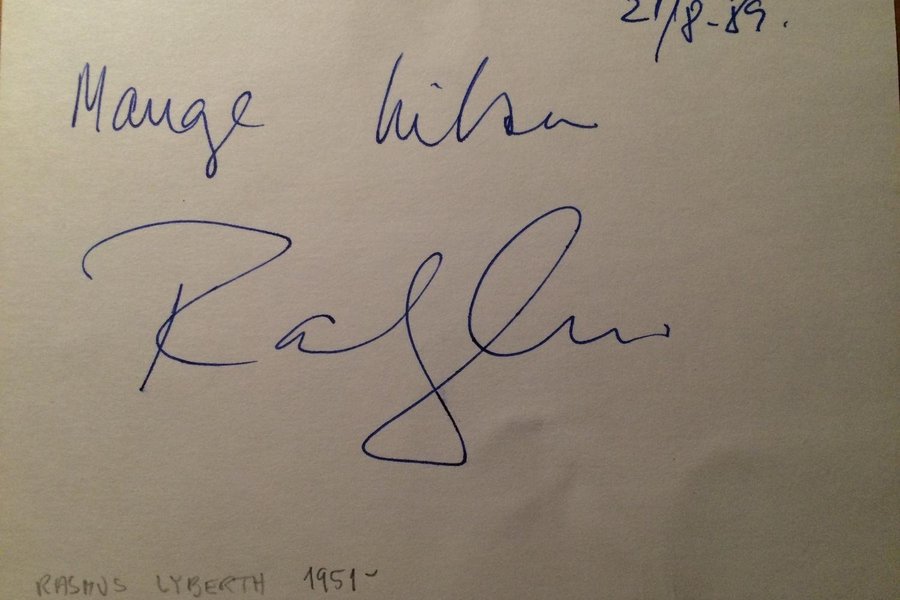 21/8-89.
Mange hilsen
RASMUS LYBERTH 1951-